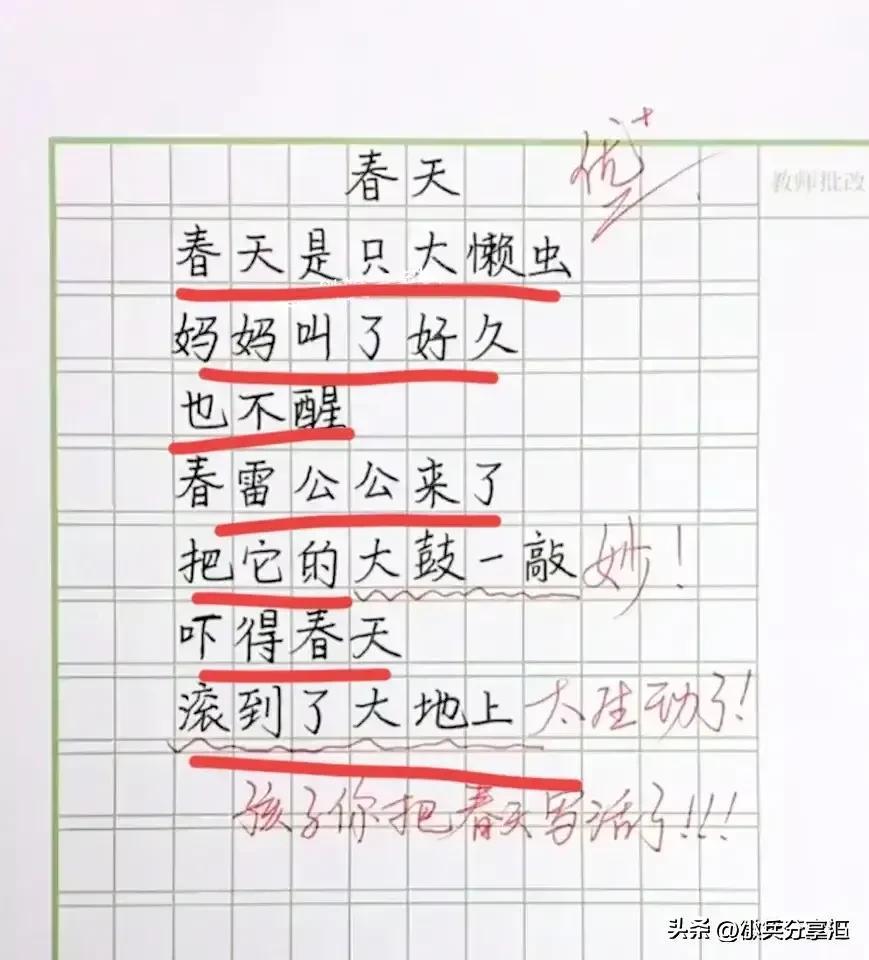 春天
优+
教师批改
春天是只大懒虫
妈妈叫了好久
也不醒
春雷公公来了
把它的大鼓一敲 妙!
吓得春天
滚到了大地上 太生动了!
孩子你把春天写活了!!!
头条 @小兵分享汇